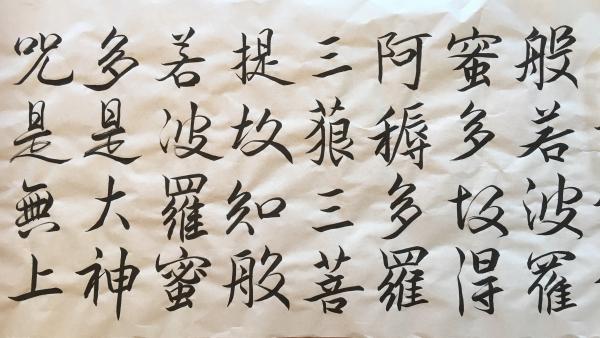 般若波羅
蜜多故得
阿耨多羅
三藐三菩
提故知般
若波羅蜜
多是大神
呪是無上